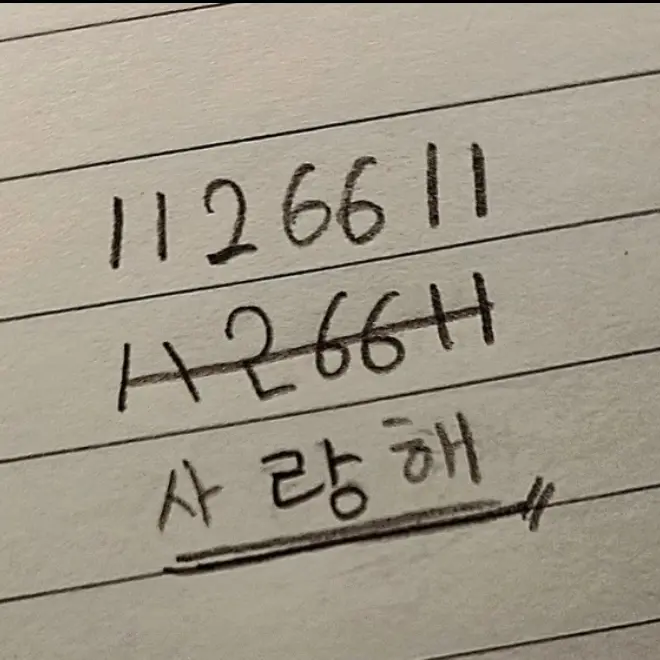 1126611
1126611
사랑해